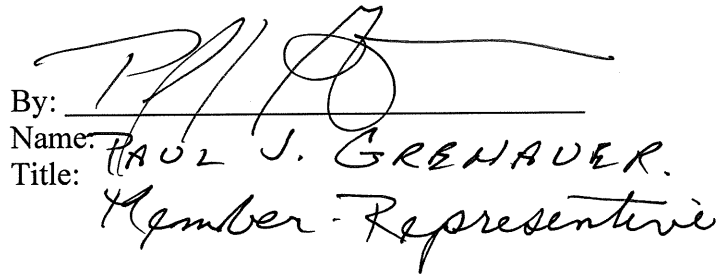 By:
Name: PAUL J. GRENAUER.
Title: Member-Representive